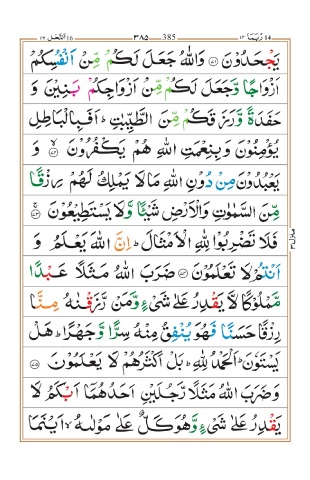 النَّحْل ١٦ 16 ٣٨٥ 385 رُبَمَا ١٤ 14
يَجْحَدُوْنَ ۝٧١ وَاللّٰهُ جَعَلَ لَكُمْ مِّنْ اَنْفُسِكُمْ
اَزْوَاجًا وَّجَعَلَ لَكُمْ مِّنْ اَزْوَاجِكُمْ بَنِيْنَ وَ
حَفَدَةً وَّرَزَقَكُمْ مِّنَ الطَّيِّبٰتِ ؕ اَفَبِالْبَاطِلِ
يُؤْمِنُوْنَ وَبِنِعْمَتِ اللّٰهِ هُمْ يَكْفُرُوْنَ ۝٧٢ۙ وَ
يَعْبُدُوْنَ مِنْ دُوْنِ اللّٰهِ مَا لَا يَمْلِكُ لَهُمْ رِزْقًا
مِّنَ السَّمٰوٰتِ وَالْاَرْضِ شَيْئًا وَّلَا يَسْتَطِيْعُوْنَ ۝٧٣ۚ
فَلَا تَضْرِبُوْا لِلّٰهِ الْاَمْثَالَ ؕ اِنَّ اللّٰهَ يَعْلَمُ وَ
اَنْتُمْ لَا تَعْلَمُوْنَ ۝٧٤ ضَرَبَ اللّٰهُ مَثَلًا عَبْدًا
مَّمْلُوْكًا لَّا يَقْدِرُ عَلٰى شَيْءٍ وَّمَنْ رَّزَقْنٰهُ مِنَّا
رِزْقًا حَسَنًا فَهُوَ يُنْفِقُ مِنْهُ سِرًّا وَّجَهْرًا ؕ هَلْ
يَسْتَوٗنَ ؕ اَلْحَمْدُ لِلّٰهِ ؕ بَلْ اَكْثَرُهُمْ لَا يَعْلَمُوْنَ ۝٧٥
وَضَرَبَ اللّٰهُ مَثَلًا رَّجُلَيْنِ اَحَدُهُمَاۤ اَبْكَمُ لَا
يَقْدِرُ عَلٰى شَيْءٍ وَّهُوَ كَلٌّ عَلٰى مَوْلٰىهُ ۙ اَيْنَمَا